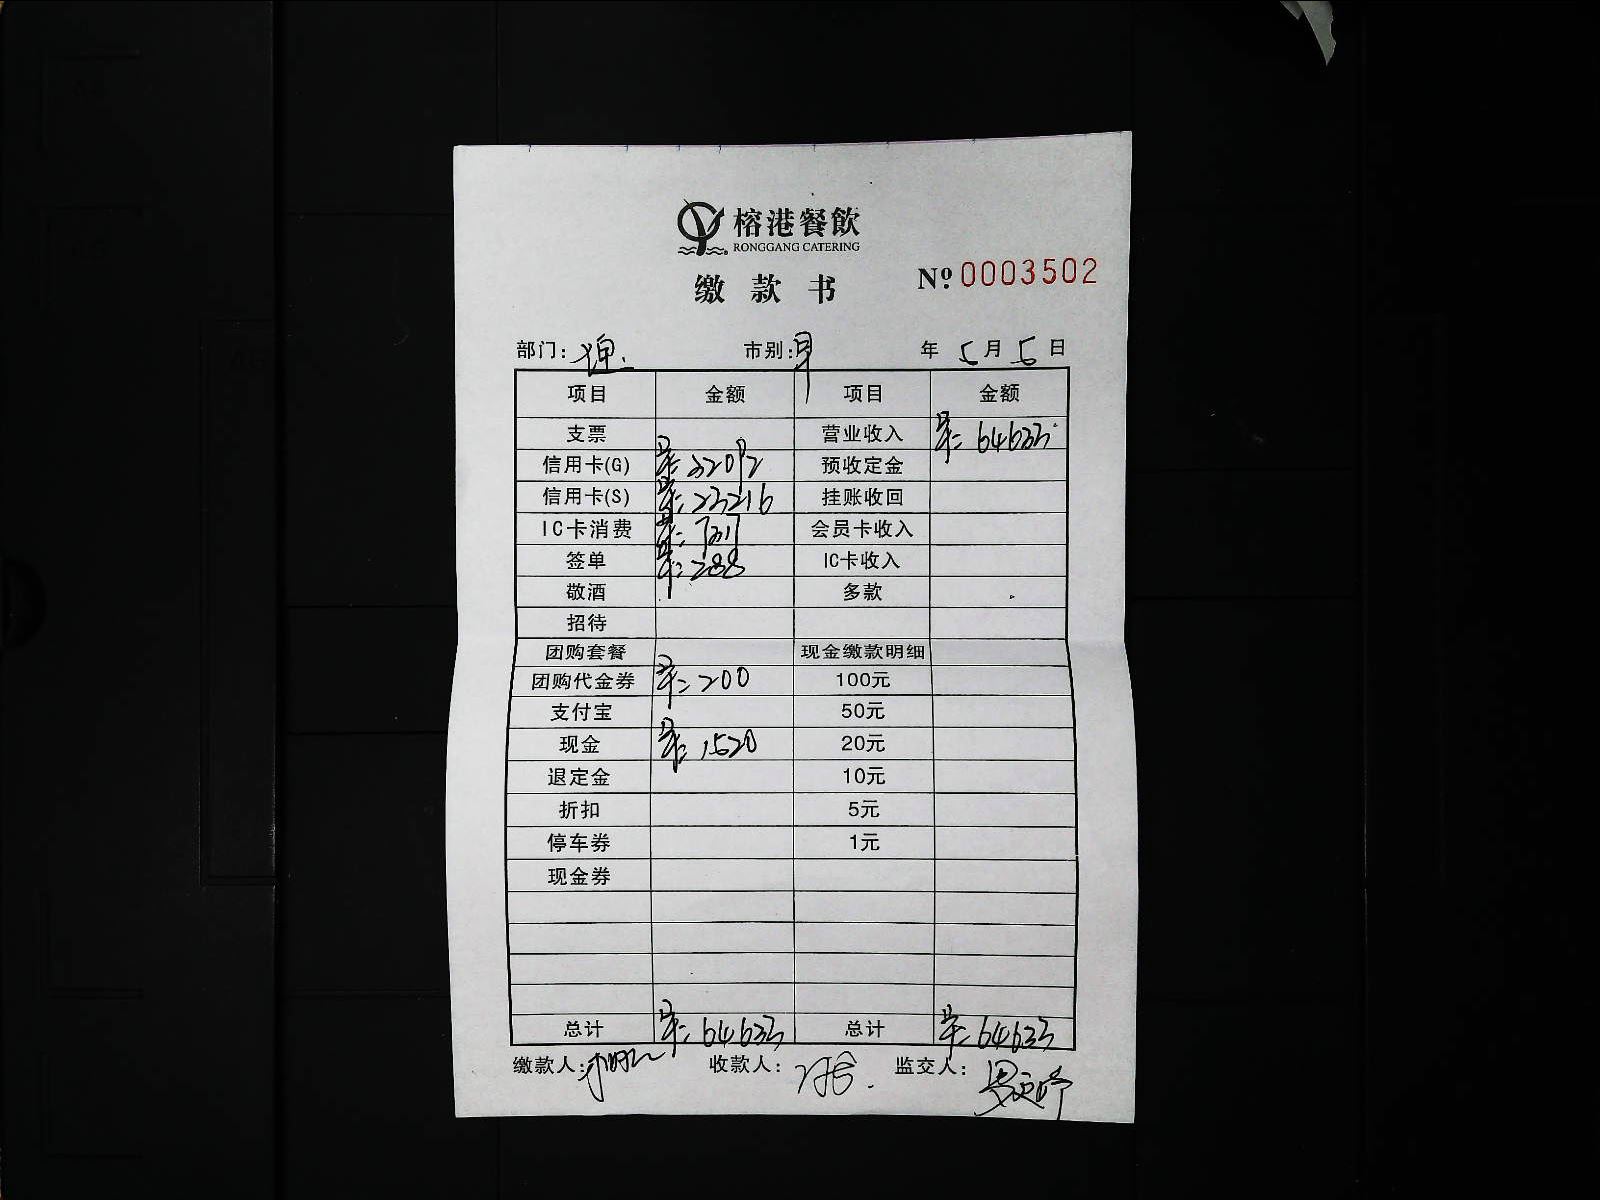 榕港餐飲
RONGGANG CATERING
缴款书
№ 0003502
部门: 市别:早 年 5月5日
项目 金额 项目 金额
支票 营业收入 早:64633
信用卡(G) 早:32092 预收定金
信用卡(S) 早:23216 挂账收回
IC卡消费 早:7317 会员卡收入
签单 早:288 IC卡收入
敬酒 多款
招待
团购套餐 现金缴款明细
团购代金券 早:200 100元
支付宝 50元
现金 早:1520 20元
退定金 10元
折扣 5元
停车券 1元
现金券
总计 早:64633 总计 早:64633
缴款人: 收款人: 监交人: